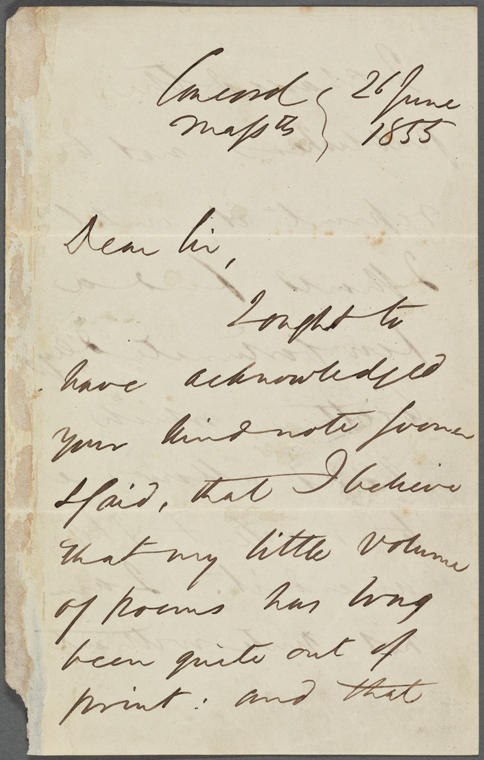 Concord } 26 June
Masstts } 1855
Dear Sir,
I ought to
have acknowledged
your kind note sooner
& said, that I believe
that my little volume
of poems has long
been quite out of
print: and that